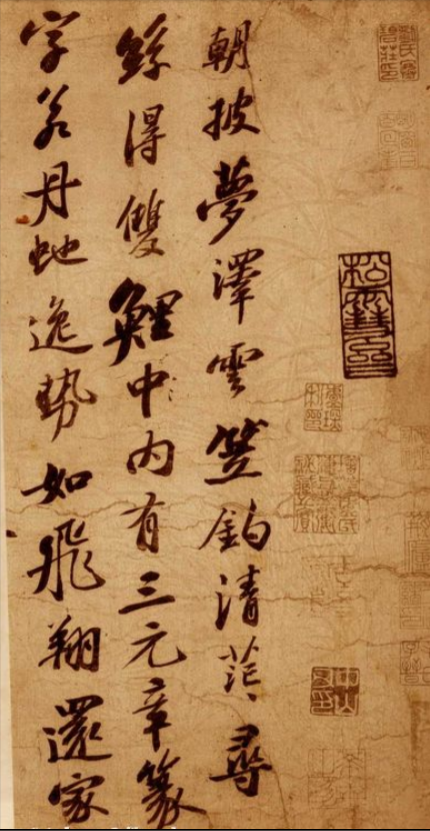 朝披夢澤雲笠釣清茫、尋
絲得雙鯉中内有三元章篆
字若丹虵逸勢如飛翔還家